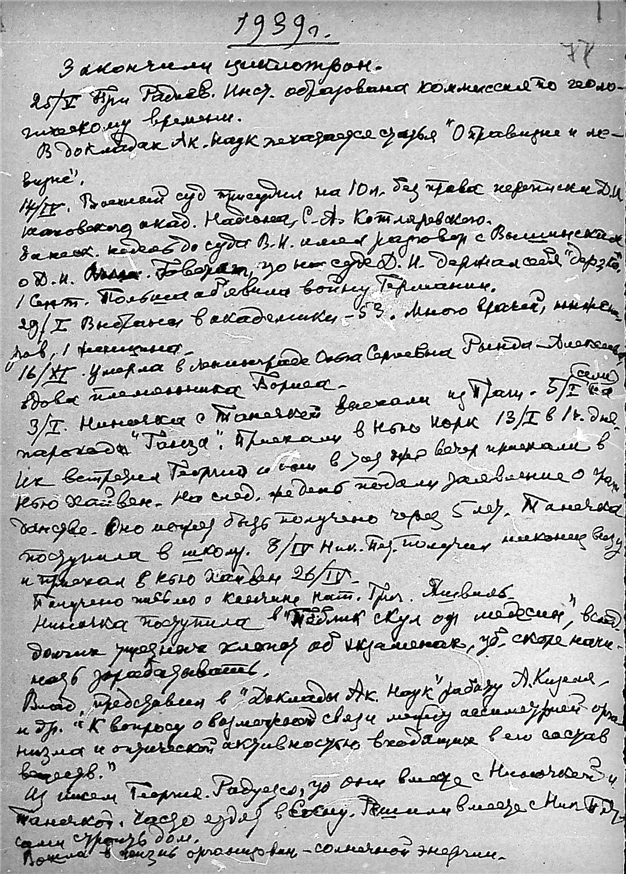 1939г.
77
Закончили циклотрон.
25/V При Радиев. Инст. образована комиссия по геоло-
гическому времени.
В докладах Ак. Наук печатается статья "О правизне и ле-
визне".
14/IV. Военный суд присудил на 10 л. без права переписки Д.И.
Шаховского, акад. Надсона, С.А. Котляревского.
За неск. недель до суда В.И. имел разговор с Вышинским
о Д.И. Говорят, что на суде Д.И. держал себя "дерзко".
1 Сент. Польша объявила войну Германии.
29/I Выбраны в академики - 53. Много врачей, инжене-
ров, 1 женщина.
16/XI. Умерла в Ленинграде Ольга Сергеевна Рында-Алексеева
вдова племянника Бориса.
3/I. Ниночка с Танечкой выехали из Праги. 5/I сели на
пароход "Ганза". Приехали в Нью Иорк 13/I в 1 ч. дня.
Их встретил Георгий и они в тот же вечер приехали в
Нью Хайвен. На след. же день подали заявление о граж-
данстве. Оно может быть получено через 5 лет. Танечка
поступила в школу. 8/IV Ник. Пет. получил наконец визу
и приехал в Нью Хайвен 26/IV.
Получено письмо о кончине Нат. Григ. Яшвиль.
Ниночка поступила в "Паблик скул оф медсин",
хлопот об экзаменах, чтоб скорее начи-
нать зарабатывать.
Влад. представил в "Доклады Ак. Наук" работу А. Кизеля
и др. "К вопросу о возможной связи между ассиметрией орга-
низма и оптической активностью входящих в его состав
веществ."
Из писем Георгия. Радуется, что они вместе с Ниночкой и
Танечкой. Часто ездят в Решили вместе с Ник. Петр.
сами строить дом.
Вошла в жизнь организован - солнечной энергии.